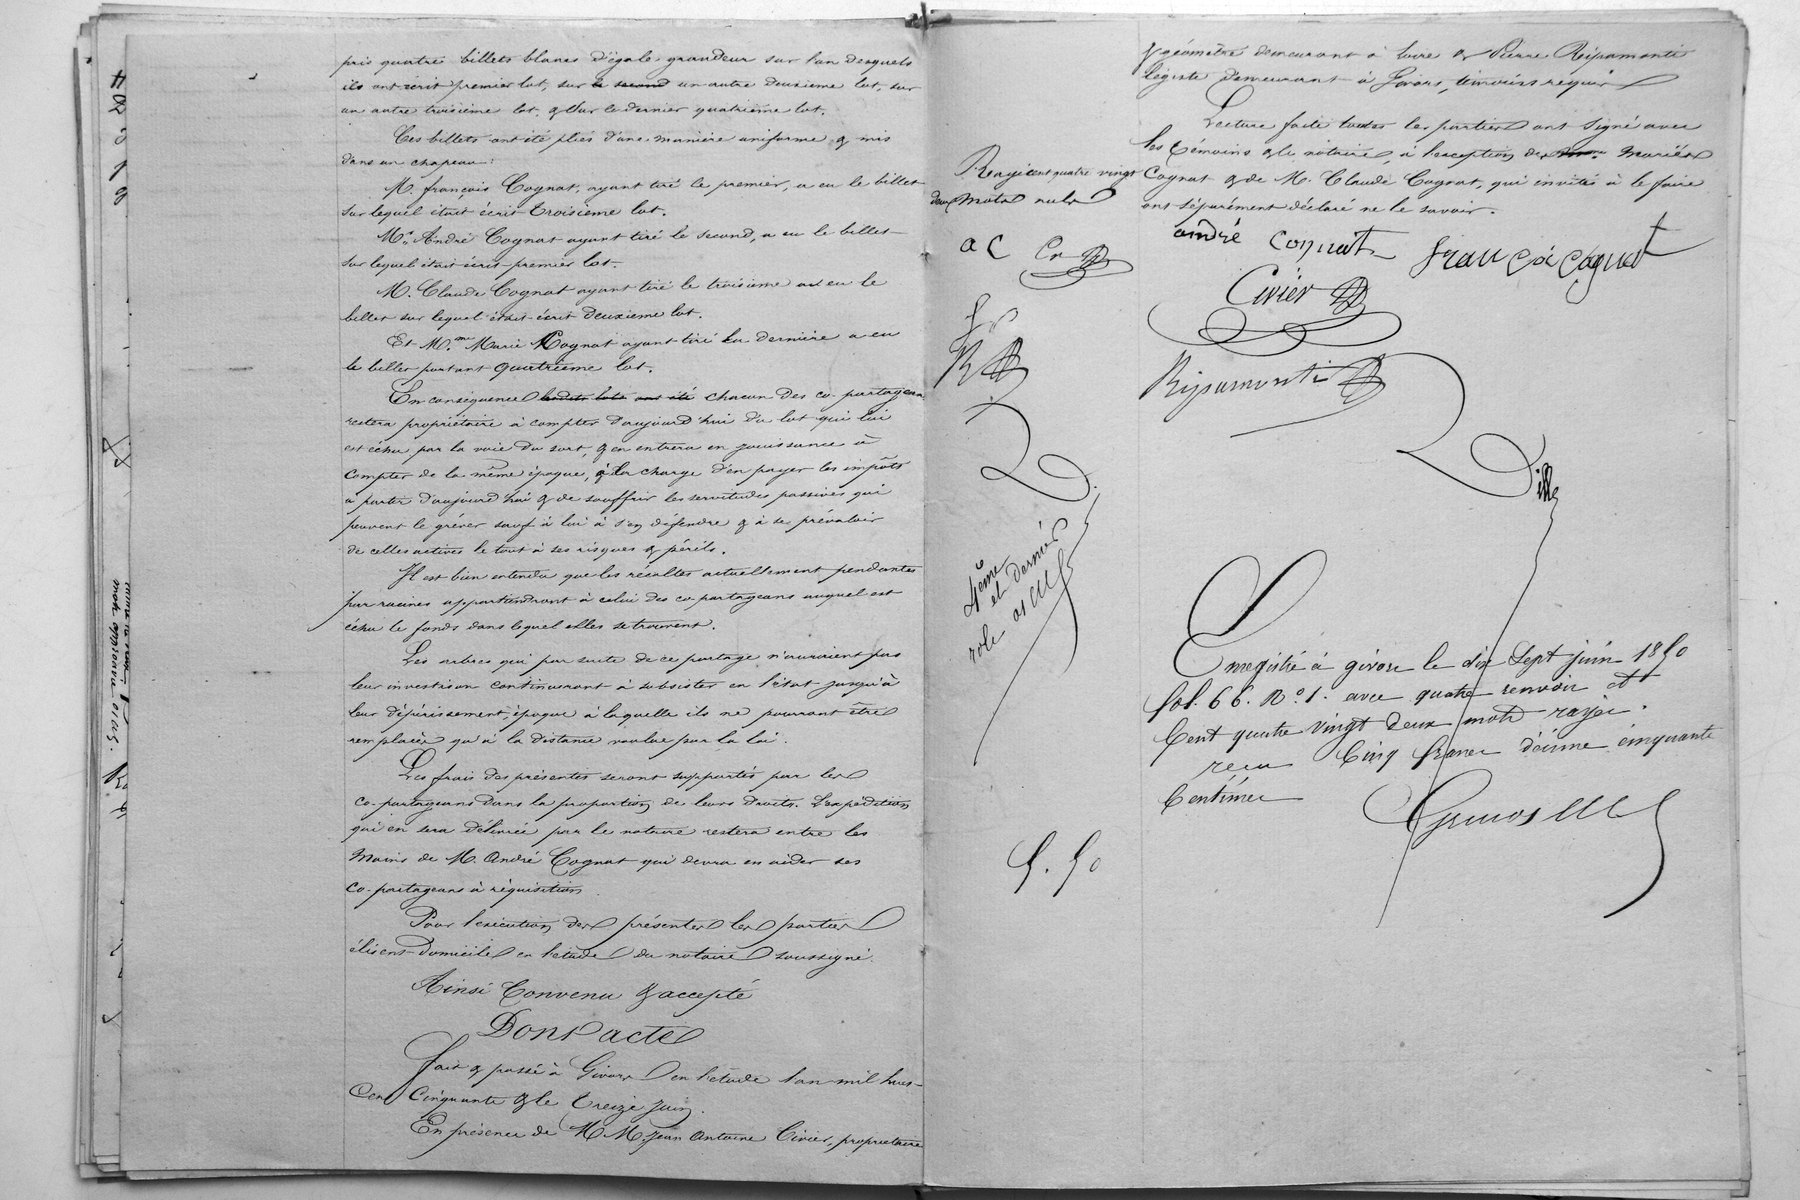 pris quatre billets blancs d'égale grandeur sur l'un desquels
ils ont écrit premier lot, sur le second un autre deuxième lot, sur
un autre troisième lot, & sur le dernier quatrième lot.
Ces billets ont été pliés d'une manière uniforme & mis
dans un chapeau:
M. françois Cognat, ayant tiré le premier, a eu le billet
sur lequel était écrit troisième lot.
Mr. André Cognat ayant tiré le second, a eu le billet
sur lequel était écrit premier lot.
M. Claude Cognat ayant tiré le troisième a eu le
billet sur lequel était écrit deuxième lot.
Et Mme Marie Cognat ayant tiré la dernière a eu
le billet portant quatrième lot.
En conséquence lesdits lots ont été chacun des co-partageans
restera propriétaire à compter d'aujourd'hui du lot qui lui
est échu par la voie du sort, & en entrera en jouissance à
compter de la même époque, à la charge d'en payer les impôts
à partir d'aujourd'hui & de souffrir les servitudes passives qui
peuvent le gréver sauf à lui à s'en défendre & à se prévaloir
de celles actives le tout à ses risques & périls.
Il est bien entendu que les récoltes actuellement pendantes
par racines appartiendront à celui des co-partageans auquel est
échu le fonds dans lequel elles se trouvent.
Les arbres qui par suite de ce partage n'auraient pas
leur investison continueront à subsister en l'état jusqu'à
leur dépérissement, époque à laquelle ils ne pourront être
remplacés qu'à la distance voulue par la loi.
Les frais des présentes seront supportés par les
co-partageans dans la proportion de leurs droits. L'expédition
qui en sera délivrée par le notaire restera entre les
mains de M. André Cognat qui devra en aider ses
co-partageans à réquisition.
Pour l'exécution des présentes les parties
élisent domicile en l'étude du notaire soussigné.
Ainsi Convenu & accepté
Dont acte
fait & passé à Givors en l'étude l'an mil huit
Cent Cinquante & le treize Juin.
En présence de M M. Jean Antoine Civier, propriétaire
& géomètre demeurant à Loire & Pierre Ripamonti
légiste demeurant à Givors, témoins requis
Lecture faite toutes les parties ont signé avec
les témoins & le notaire, à l'exception des mariés
Cognat & de M. Claude Cognat, qui invités à le faire
ont séparément déclaré ne le savoir.
Rayé cent quatre vingt
deux mots nuls
a C
andré Cognat
françois Cognat
Civier
Ripamonti
4ème
et dernier
role
Enregistré à givors le dix Sept juin 1850
fol. 66. Ro. 1. avec quatre renvois et
Cent quatre vingt deux mots rayés.
reçu Cinq francs décime cinquante
Centimes
5. 50